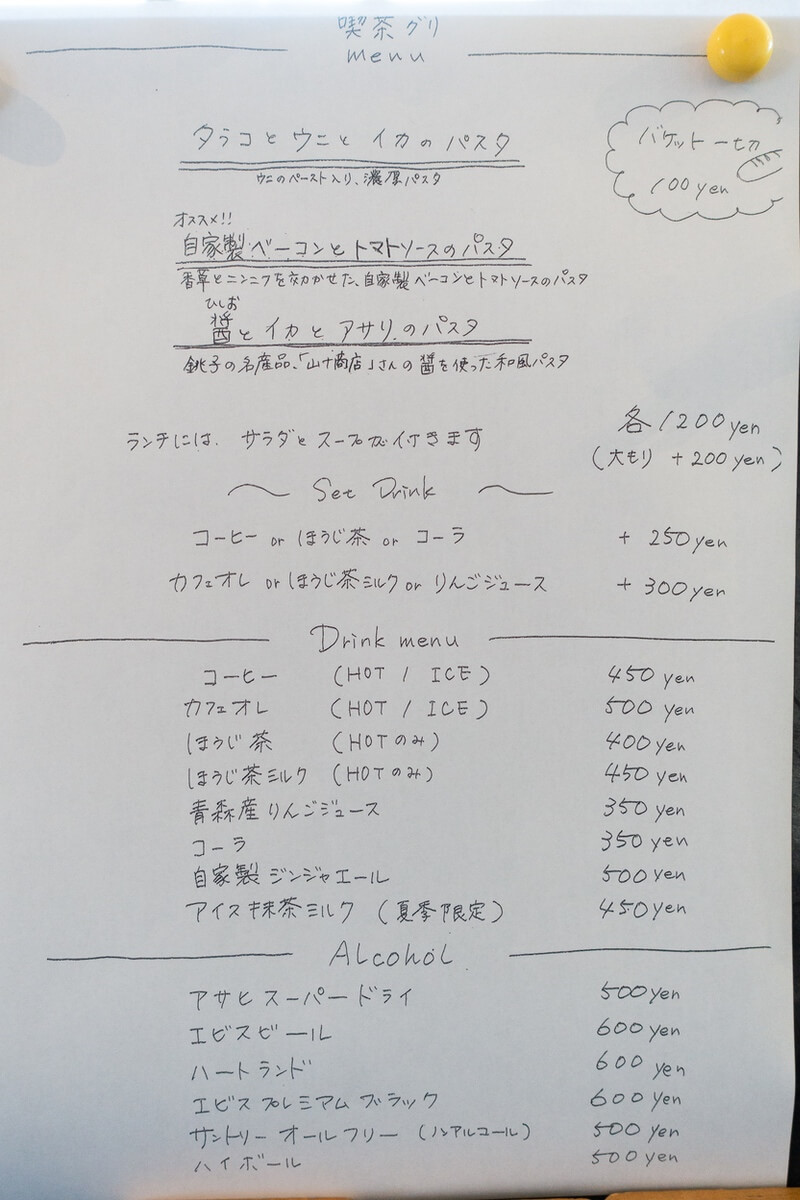 喫茶グリ
menu
タラコとウニとイカのパスタ
ウニのペースト入り、濃厚パスタ
バケット一切
100yen
オススメ!!
自家製ベーコンとトマトソースのパスタ
香草とニンニクを効かせた、自家製ベーコンとトマトソースのパスタ
ひしお
醤とイカとアサリのパスタ
銚子の名産品、「山十商店」さんの醤を使った和風パスタ
ランチには、サラダとスープが付きます
各1200yen
(大もり +200yen)
〜 Set Drink 〜
コーヒー or ほうじ茶 or コーラ + 250yen
カフェオレ or ほうじ茶ミルク or りんごジュース + 300yen
Drink menu
コーヒー (HOT / ICE) 450 yen
カフェオレ (HOT / ICE) 500 yen
ほうじ茶 (HOTのみ) 400 yen
ほうじ茶ミルク (HOTのみ) 450 yen
青森産りんごジュース 350 yen
コーラ 350 yen
自家製ジンジャエール 500 yen
アイス抹茶ミルク (夏季限定) 450 yen
Alcohol
アサヒスーパードライ 500 yen
エビスビール 600 yen
ハートランド 600 yen
エビスプレミアムブラック 600 yen
サントリーオールフリー (ノンアルコール) 500 yen
ハイボール 500 yen